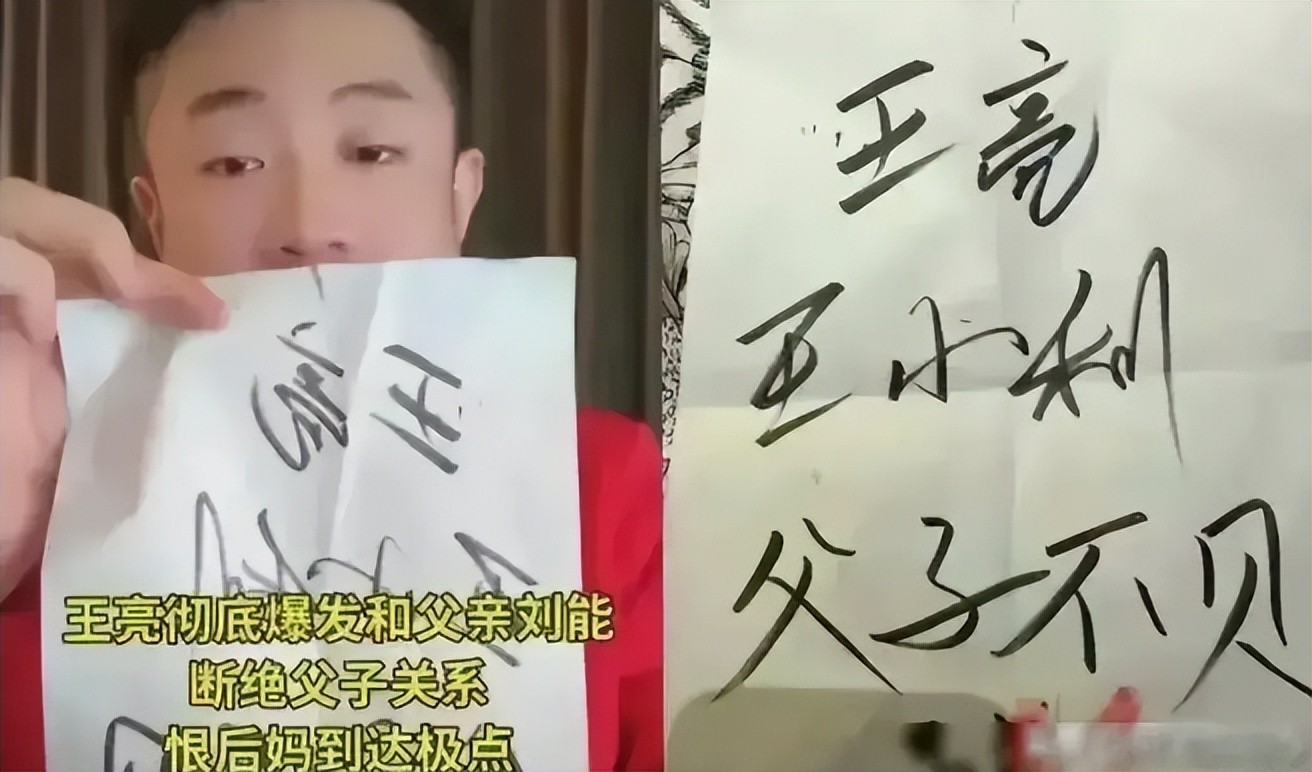 王亮彻底爆发和父亲刘能
断绝父子关系
恨后妈到达极点
王亮
王小利
父子不贝